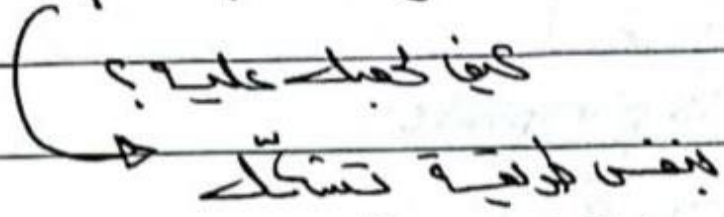 كيف نحصل عليه؟
بنفس طريقة تشكّل